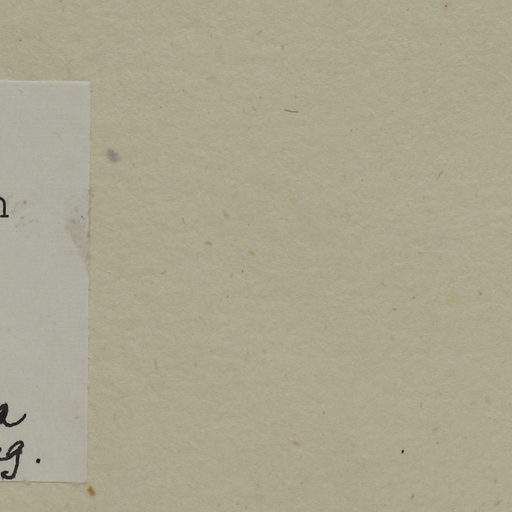 n
a
g.